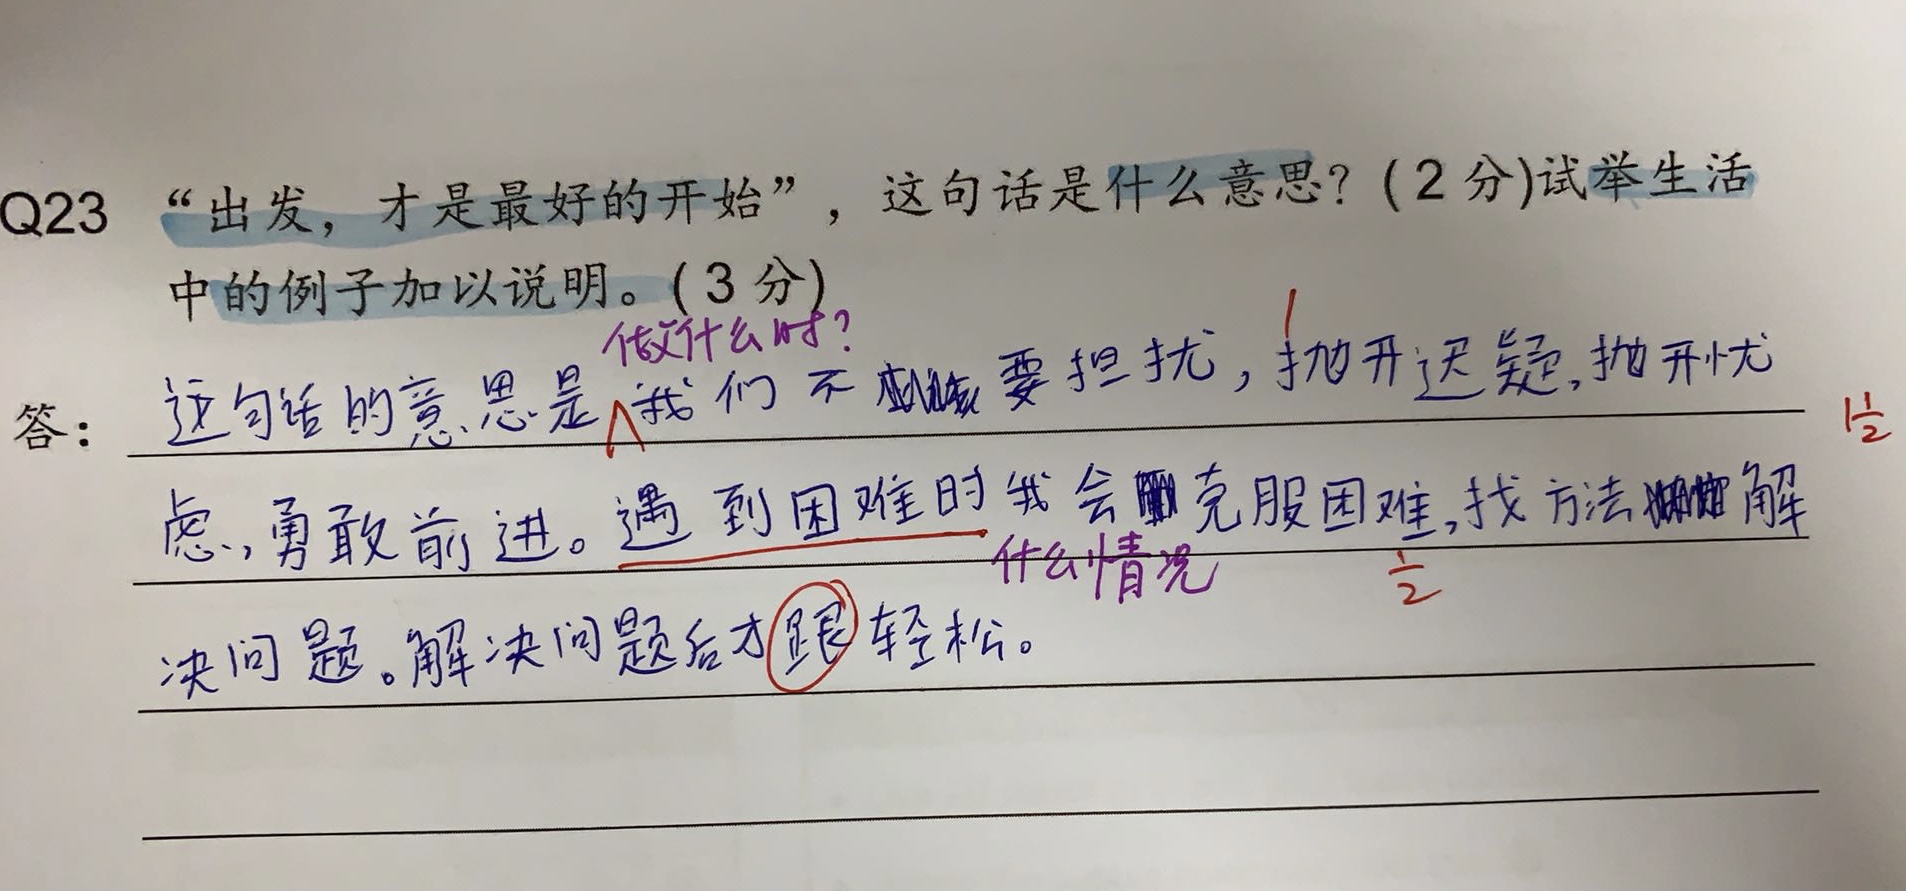 Q23 “出发，才是最好的开始”，这句话是什么意思？(2分)试举生活
中的例子加以说明。(3分)
做什么时？
1
答：这句话的意思是我们不要担扰，抛开迟疑，抛开忧
1½
虑，勇敢前进。遇到困难时我会克服困难，找方法解
什么情况
½
决问题。解决问题后才跟轻松。